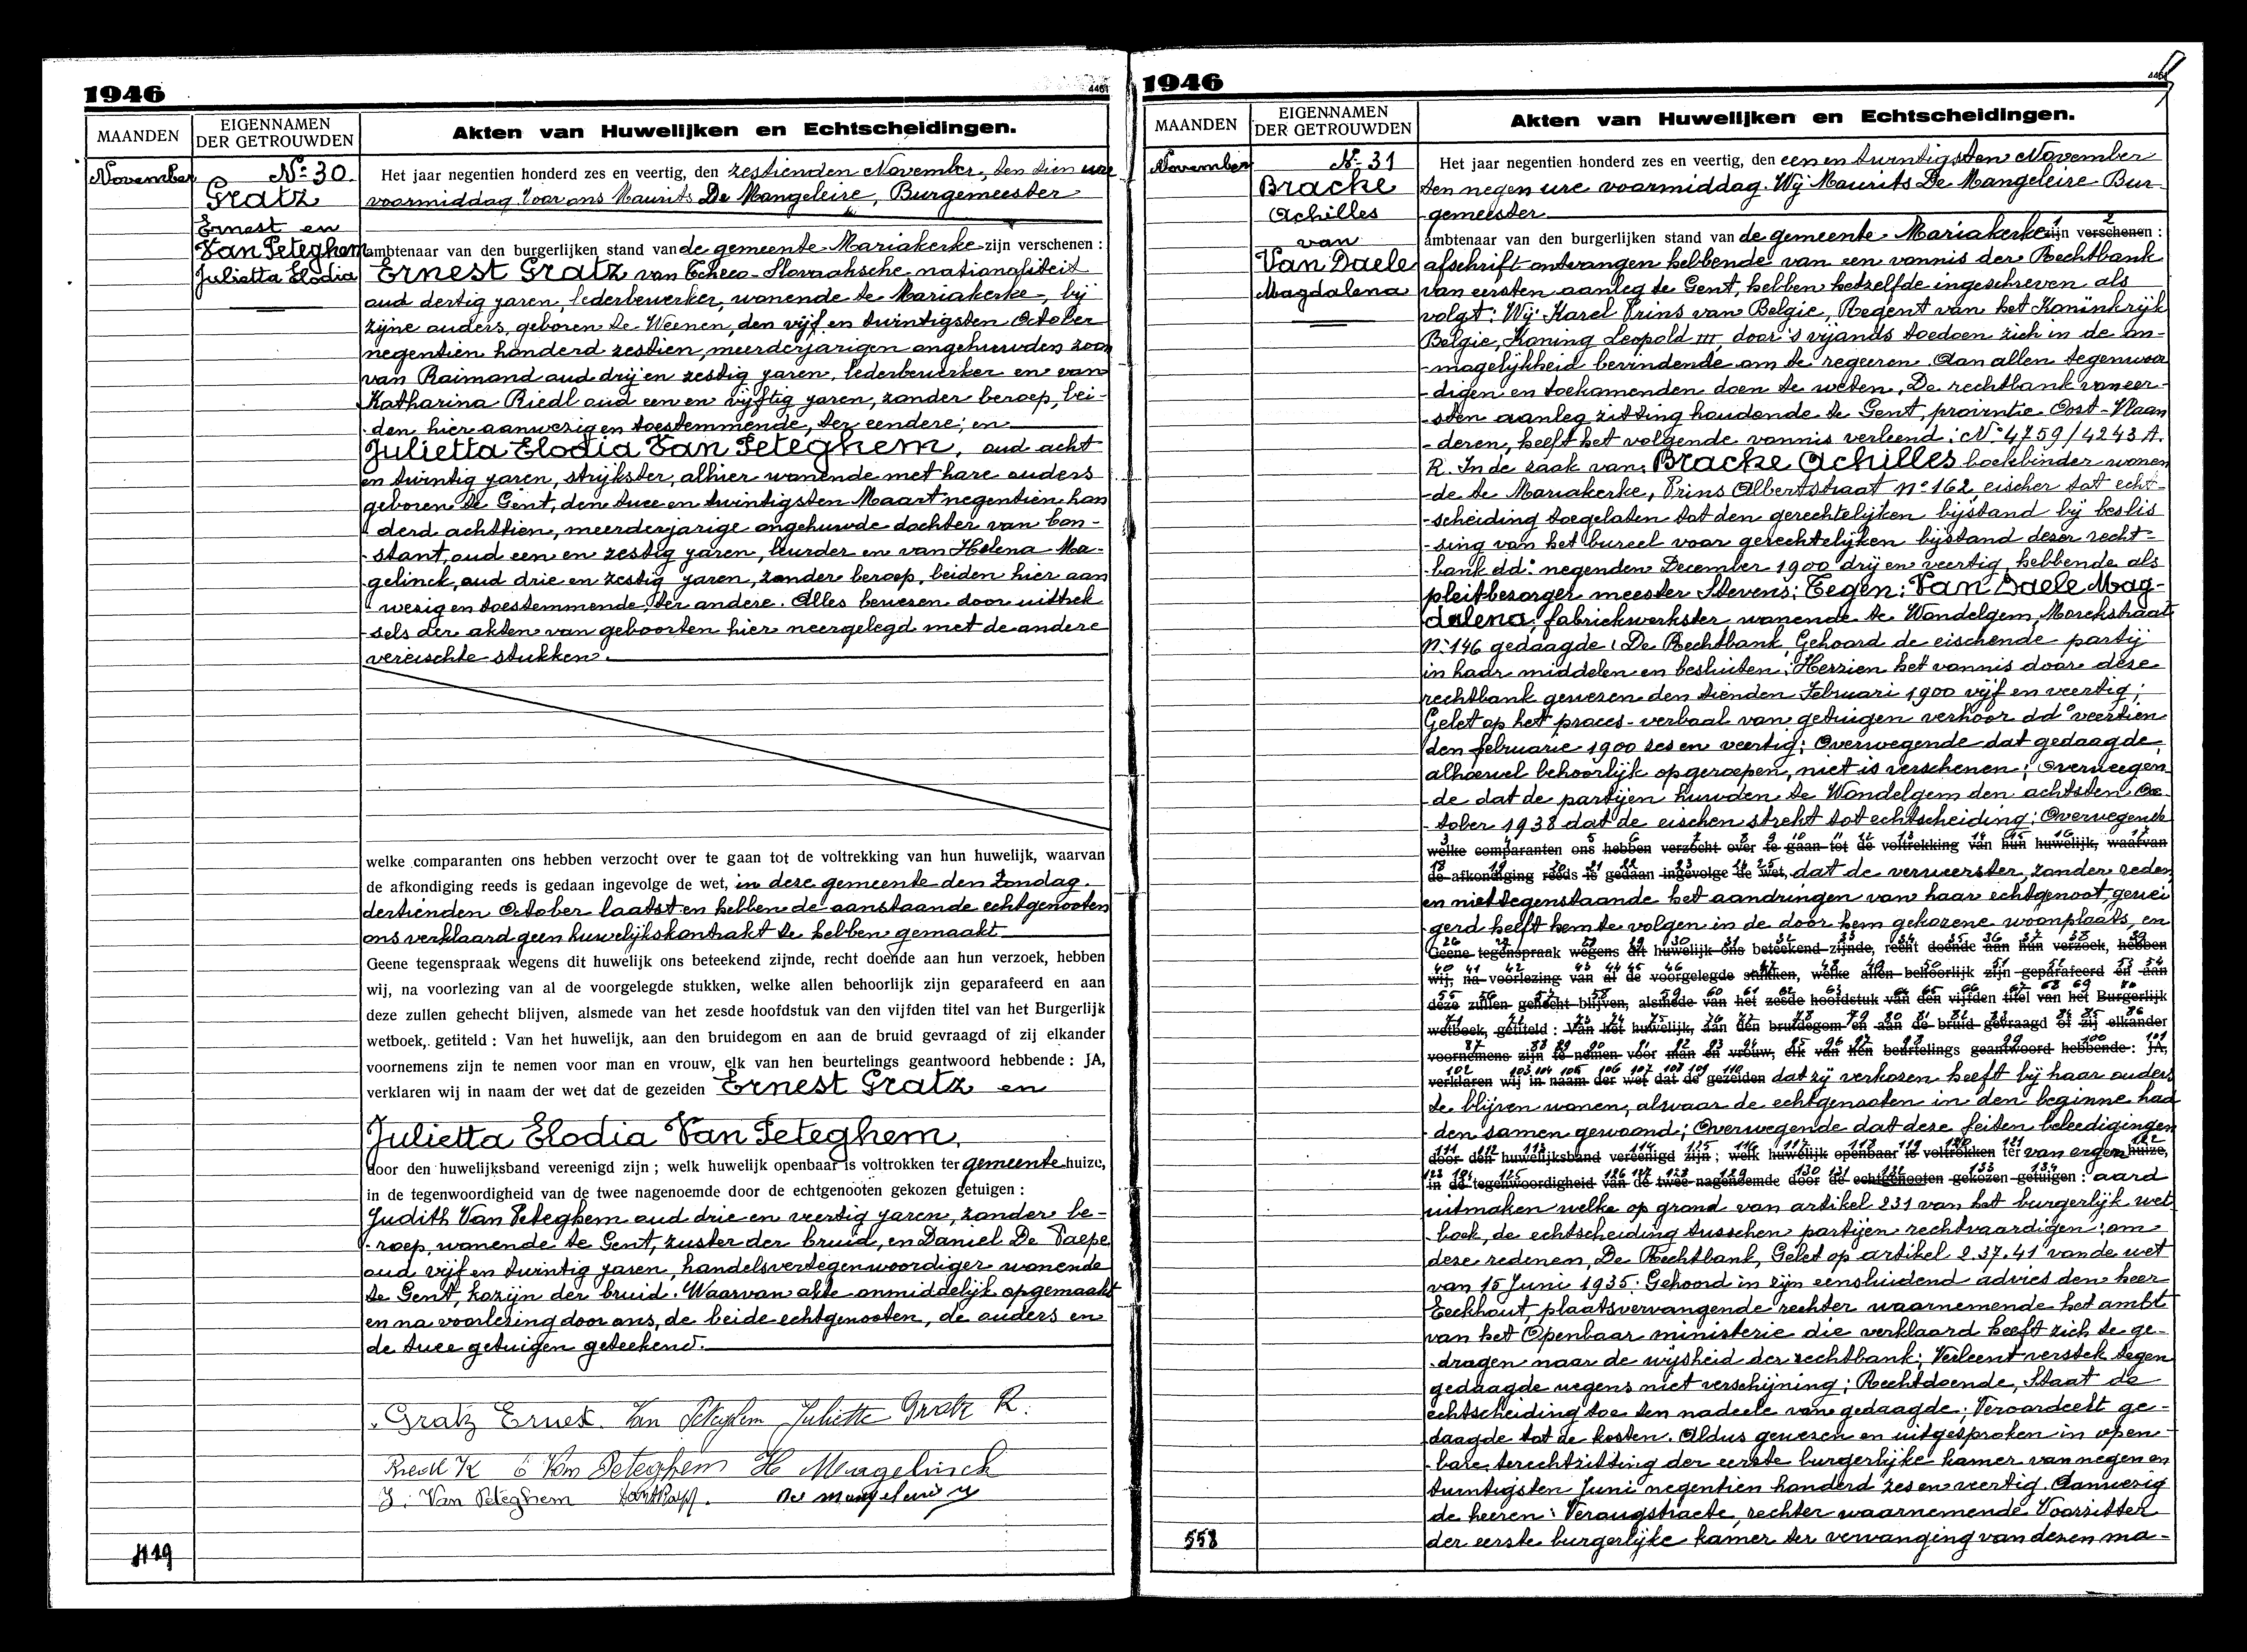 1946
4461
MAANDEN
EIGENNAMEN
DER GETROUWDEN
Akten van Huwelijken en Echtscheidingen.
November
No 30
Gratz
Ernest en
Van Peteghem
Julietta Elodia
Het jaar negentien honderd zes en veertig, den zestienden November, ten tien ure
voormiddag Voor ons Maurits De Mangeleire, Burgemeester
ambtenaar van den burgerlijken stand van de gemeente Mariakerke zijn verschenen :
Ernest Gratz van Tcheco-Slovaaksche nationaliteit
oud dertig jaren, lederbewerker, wonende te Mariakerke, bij
zijne ouders, geboren te Weenen, den vijf en twintigsten October
negentien honderd zestien, meerderjarigen ongehuwden zoon
van Raimond oud drij en zestig jaren, lederbewerker en van
Katharina Riedl oud een en vijftig jaren, zonder beroep, bei-
-den hier aanwezig en toestemmende, ter eendere; en
Julietta Elodia Van Peteghem, oud acht
en twintig jaren, strijkster, alhier wonende met hare ouders
geboren te Gent, den twee en twintigsten Maart negentien hon
derd achttien, meerderjarige ongehuwde dochter van Con-
-stant, oud een en zestig jaren, leurder en van Helena Ma-
gelinck, oud drie en zestig jaren, zonder beroep, beiden hier aan
wezig en toestemmende, ter andere. Alles bewezen door uittrek
-sels der akten van geboorten hier neergelegd met de andere
vereischte stukken.
welke comparanten ons hebben verzocht over te gaan tot de voltrekking van hun huwelijk, waarvan
de afkondiging reeds is gedaan ingevolge de wet, in deze gemeente den Zondag
dertienden October laatst en hebben de aanstaande echtgenooten
ons verklaard geen huwelijkskontrakt te hebben gemaakt
Geene tegenspraak wegens dit huwelijk ons beteekend zijnde, recht doende aan hun verzoek, hebben
wij, na voorlezing van al de voorgelegde stukken, welke allen behoorlijk zijn geparafeerd en aan
deze zullen gehecht blijven, alsmede van het zesde hoofdstuk van den vijfden titel van het Burgerlijk
wetboek, getiteld : Van het huwelijk, aan den bruidegom en aan de bruid gevraagd of zij elkander
voornemens zijn te nemen voor man en vrouw, elk van hen beurtelings geantwoord hebbende : JA,
verklaren wij in naam der wet dat de gezeiden Ernest Gratz en
Julietta Elodia Van Peteghem,
door den huwelijksband vereenigd zijn ; welk huwelijk openbaar is voltrokken ter gemeentehuize,
in de tegenwoordigheid van de twee nagenoemde door de echtgenooten gekozen getuigen :
Judith Van Peteghem oud drie en veertig jaren, zonder be-
-roep, wonende te Gent, zuster der bruid, en Daniel De Paepe
oud vijf en twintig jaren, handelsvertegenwoordiger wonende
te Gent, kozijn der bruid. Waarvan akte onmiddelijk opgemaakt
en na voorlezing door ons, de beide echtgenooten, de ouders en
de twee getuigen geteekend.
Gratz Ernest Van Peteghem Juliette Gratz R.
Riedl K C Van Peteghem H Magelinck
J. Van Peteghem
419
1946
MAANDEN
EIGENNAMEN
DER GETROUWDEN
Akten van Huwelijken en Echtscheidingen.
November
No 31
Bracke
Achilles
van
Van Daele
Magdalena
Het jaar negentien honderd zes en veertig, den een en twintigsten November
ten negen ure voormiddag Wij Maurits De Mangeleire Bur-
-gemeester
ambtenaar van den burgerlijken stand van de gemeente Mariakerke zijn verschenen :
afschrift ontvangen hebbende van een vonnis der Rechtbank
van eersten aanleg te Gent, hebben hetzelfde ingeschreven als
volgt: Wij Karel Prins van Belgie, Regent van het Koninkrijk
Belgie, Koning Leopold III, door 's vijands toedoen zich in de on-
-mogelijkheid bevindende om te regeeren. Aan allen tegenwoor
-digen en toekomenden doen te weten, De rechtbank van eer-
-sten aanleg zitting houdende te Gent, provintie Oost-Vlaan
-deren, heeft het volgende vonnis verleend: No 4759/4243 A.
R. In de zaak van: Bracke Achilles boekbinder wonen
-de te Mariakerke, Prins Albertstraat no 162, eischer tot echt-
-scheiding toegelaten tot den gerechtelijken bijstand bij beslis
-sing van het bureel voor gerechtelijken bijstand dezer recht-
-bank dd. negenden December 1900 drij en veertig, hebbende als
pleitbezorger meester Stevens; Tegen: Van Daele Mag-
dalena, fabriekwerkster wonende te Wondelgem, Morekstraat
No 146 gedaagde: De Rechtbank, Gehoord de eischende partij
in haar middelen en besluiten; Herzien het vonnis door deze
rechtbank gewezen den tienden Februari 1900 vijf en veertig;
Gelet op het proces-verbaal van getuigen verhoor ddo veertien
den februarie 1900 zes en veertig; Overwegende dat gedaagde,
alhoewel behoorlijk opgeroepen, niet is verschenen; Overwegen
-de dat de partijen huwden te Wondelgem den achtsten Oc-
-tober 1938 dat de eischen strekt tot echtscheiding; Overwegende
welke comparanten ons hebben verzocht over te gaan tot de voltrekking van hun huwelijk, waarvan
de afkondiging reeds is gedaan ingevolge de wet, dat de verweerster, zonder reden
en niettegenstaande het aandringen van haar echtgenoot, gewei
gerd heeft hem te volgen in de door hem gekozene woonplaats, en
Geene tegenspraak wegens dit huwelijk ons beteekend zijnde, recht doende aan hun verzoek, hebben
wij, na voorlezing van al de voorgelegde stukken, welke allen behoorlijk zijn geparafeerd en aan
deze zullen gehecht blijven, alsmede van het zesde hoofdstuk van den vijfden titel van het Burgerlijk
wetboek, getiteld : Van het huwelijk, aan den bruidegom en aan de bruid gevraagd of zij elkander
voornemens zijn te nemen voor man en vrouw, elk van hen beurtelings geantwoord hebbende : JA,
verklaren wij in naam der wet dat de gezeiden dat zij verkozen heeft bij haar ouders
te blijven wonen, alwaar de echtgenooten in den beginne had
den samen gewoond; Overwegende dat deze feiten beleedigingen
door den huwelijksband vereenigd zijn ; welk huwelijk openbaar is voltrokken ter van ergen huize,
in de tegenwoordigheid van de twee nagenoemde door de echtgenooten gekozen getuigen : aard
uitmaken welke op grond van artikel 231 van het burgerlijk wet
-boek, de echtscheiding tusschen partijen rechtvaardigen; om
deze redenen, De Rechtbank, Gelet op artikel 2.37.41 van de wet
van 15 Juni 1935: Gehoord in zijn eensluidend advies den heer
Eeckhout, plaatsvervangende rechter waarnemende het ambt
van het Openbaar ministerie die verklaard heeft zich te ge-
-dragen naar de wijsheid der rechtbank; Verleent verstek tegen
gedaagde wegens niet verschijning; Rechtdoende, Staat de
echtscheiding toe ten nadeele van gedaagde; Veroordeelt ge-
daagde tot de kosten. Aldus gewezen en uitgesproken in open-
-bare terechtzitting der eerste burgerlijke kamer van negen en
twintigsten Juni negentien honderd zes en veertig. Aanwezig
de heeren: Veraugstraete, rechter waarnemende Voorzitter
der eerste burgerlijke kamer ter vervanging van dezen ma-
558